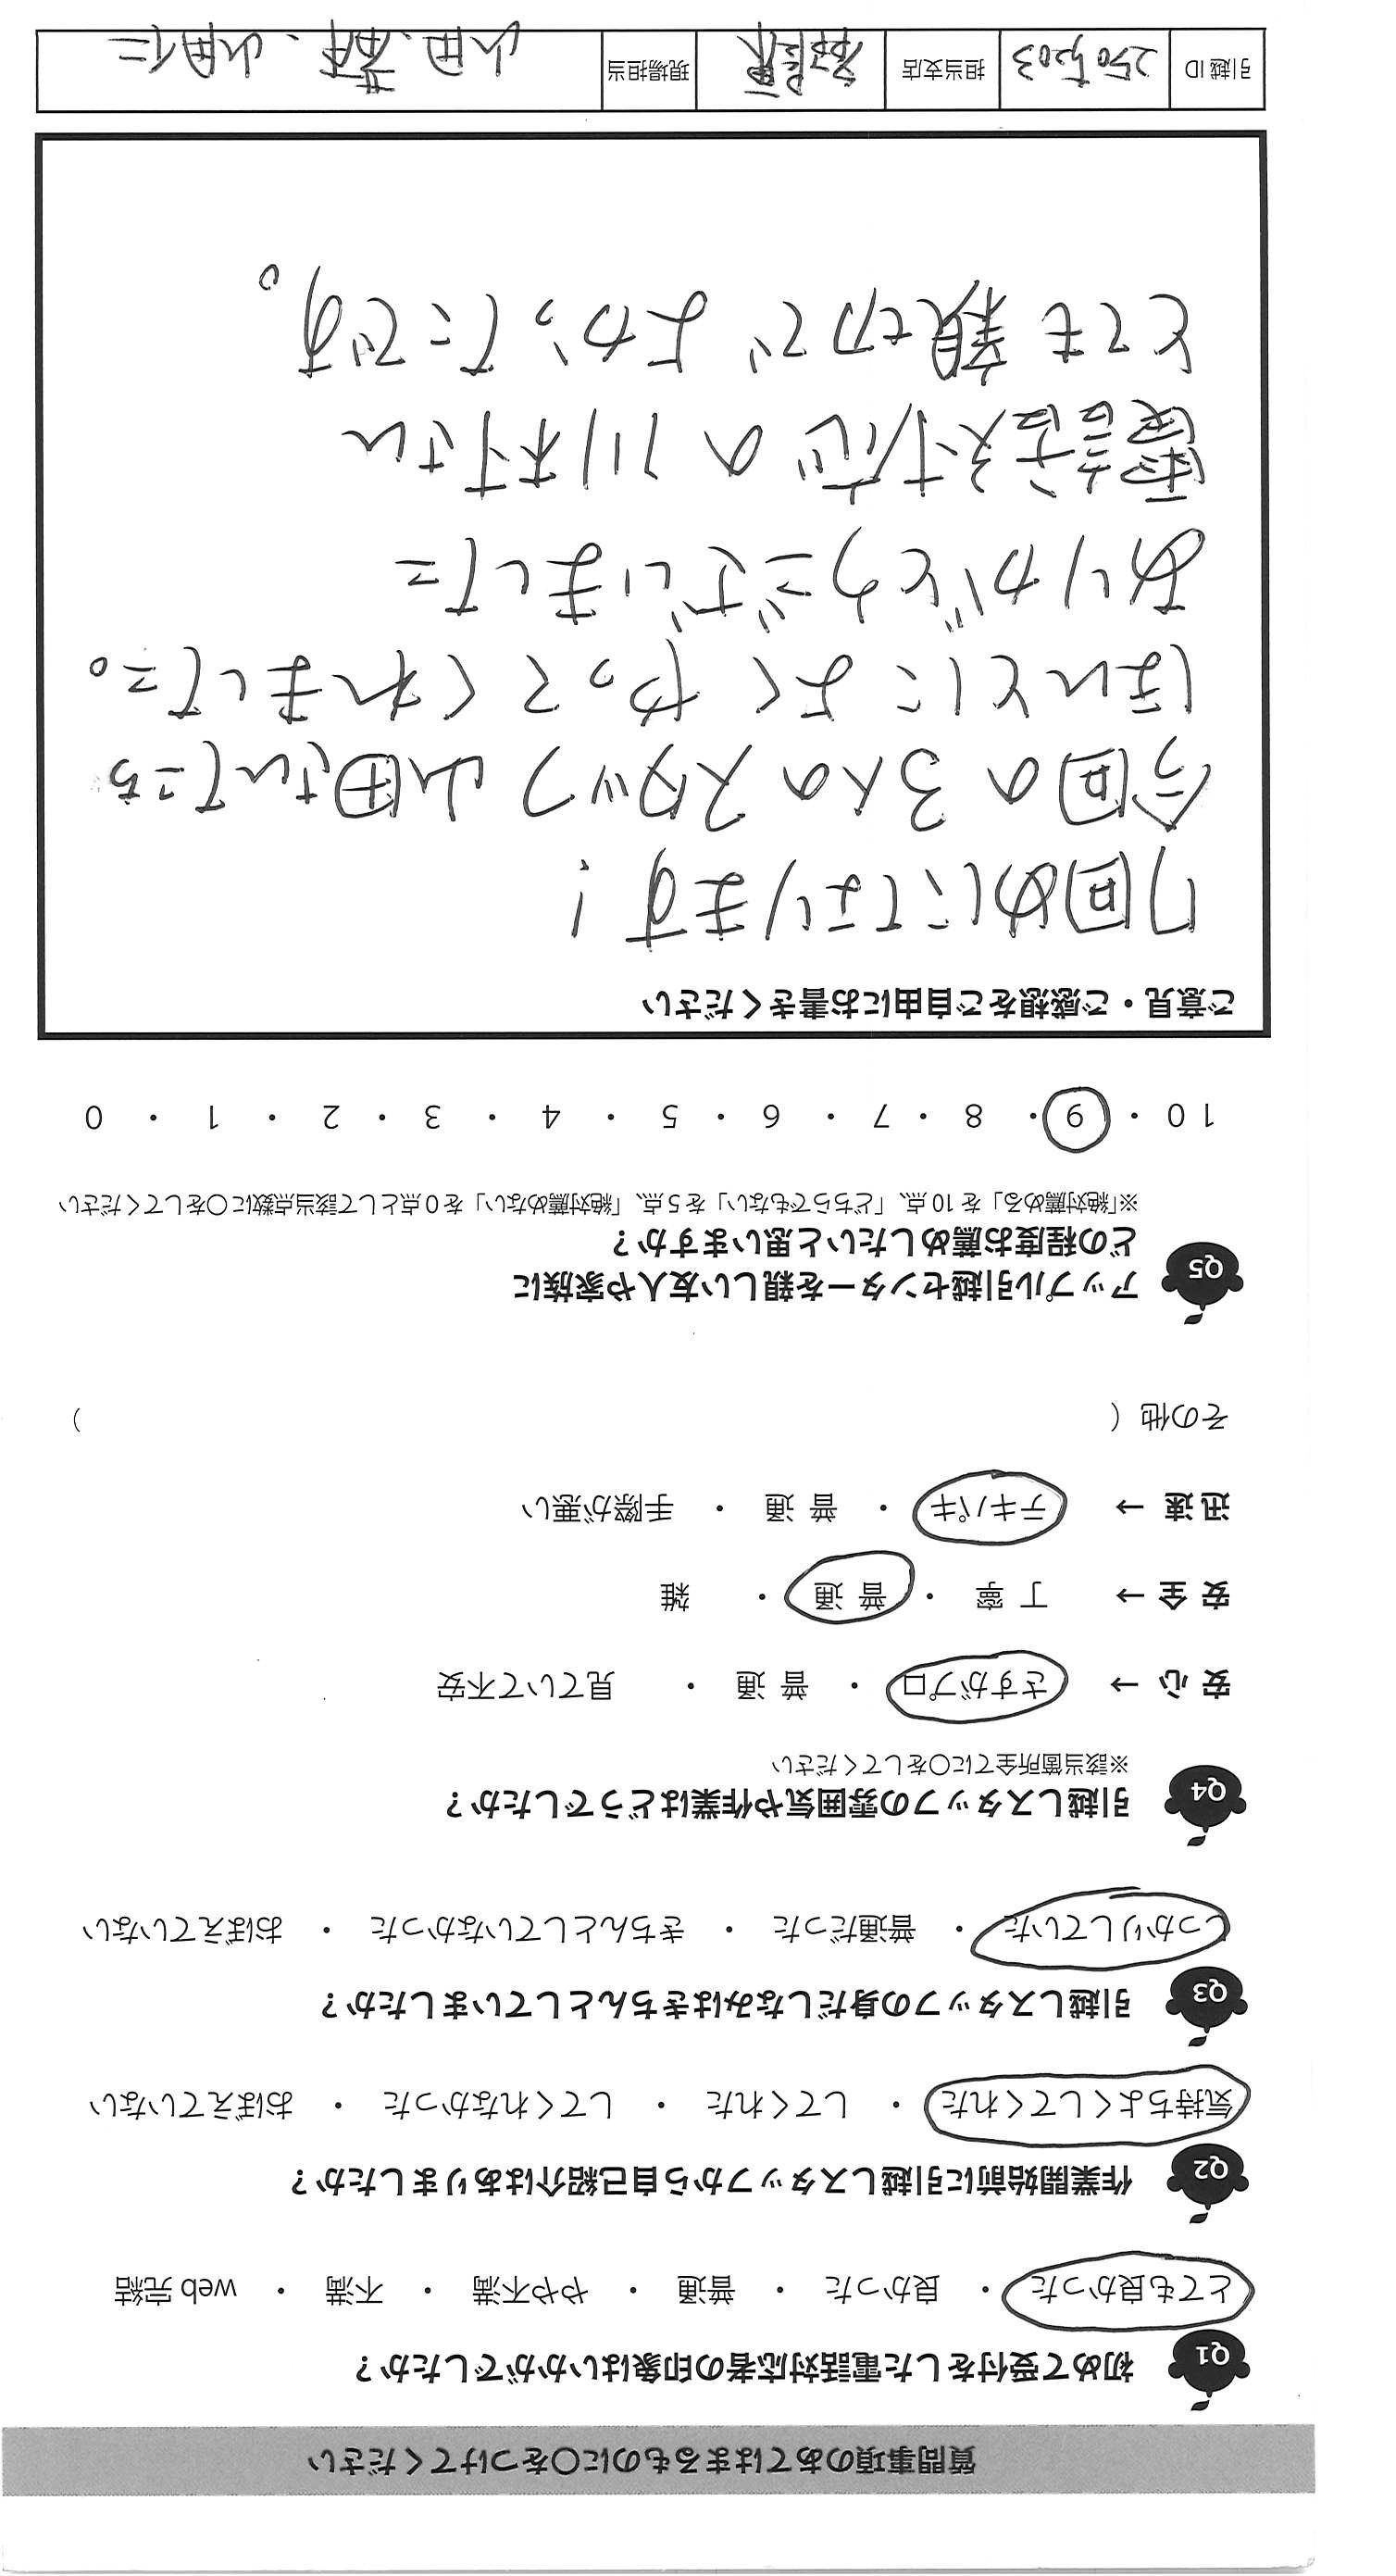 質問事項のあてはまるものに○をつけてください
Q1 初めて受付をした電話対応者の印象はいかがでしたか？
とても良かった ・ 良かった ・ 普通 ・ やや不満 ・ 不満 ・ web 完結
Q2 作業開始前に引越しスタッフから自己紹介はありましたか？
気持ちよくしてくれた ・ してくれた ・ してくれなかった ・ おぼえていない
Q3 引越しスタッフの身だしなみはきちんとしていましたか？
しっかりしていた ・ 普通だった ・ きちんとしていなかった ・ おぼえていない
Q4 引越しスタッフの雰囲気や作業はどうでしたか？
※該当箇所全てに○をしてください
安 心 → さすがプロ ・ 普 通 ・ 見ていて不安
安 全 → 丁 寧 ・ 普 通 ・ 雑
迅 速 → テキパキ ・ 普 通 ・ 手際が悪い
その他（ ）
Q5 アップル引越センターを親しい友人や家族に
どの程度お薦めしたいと思いますか？
※「絶対薦める」を 10 点、「どちらでもない」を 5 点、「絶対薦めない」を 0 点として該当点数に○をしてください
10 ・ 9 ・ 8 ・ 7 ・ 6 ・ 5 ・ 4 ・ 3 ・ 2 ・ 1 ・ 0
ご意見・ご感想をご自由にお書きください
7回めになります！
今回の3人のスタッフ山田さんたち
ほんとによくやってくれました。
ありがとうございました
電話対応の川村さん
とても親切で よかったです。
引越 ID 担当支店 現場担当 山田、 山田仁